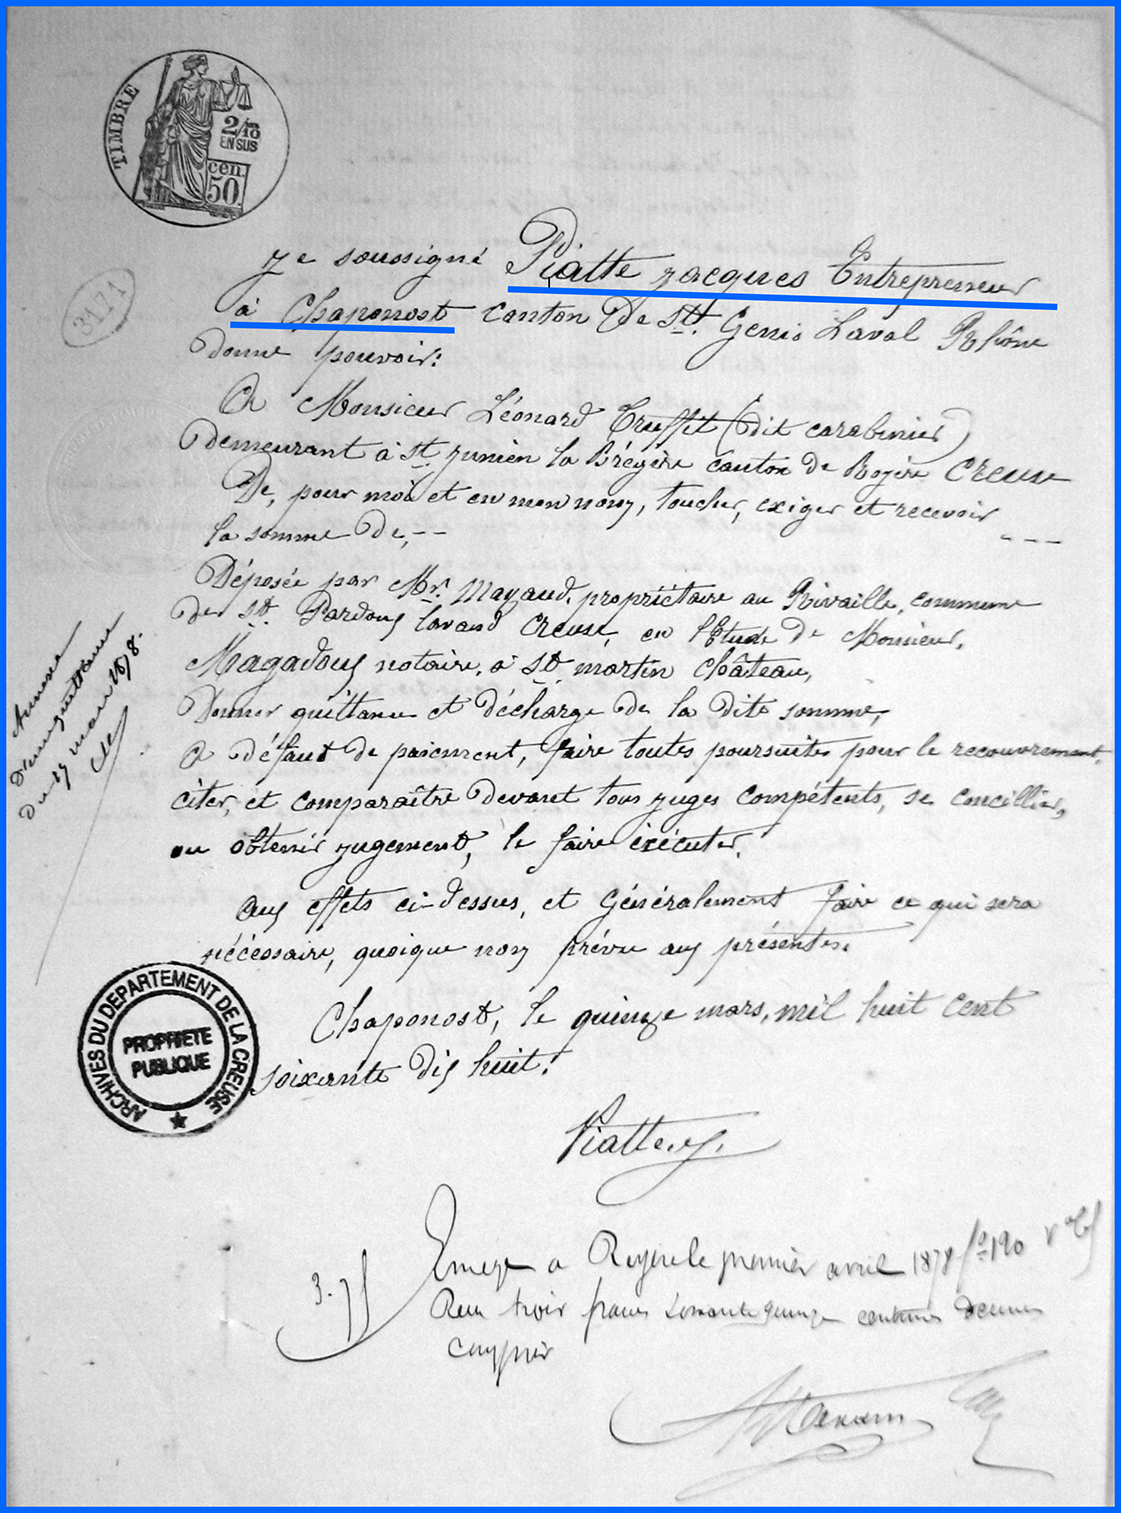 TIMBRE
2/10
EN SUS
cen.
50
3171
Je soussigné Piatte Jacques Entrepreneur
à Chaponost canton de St. Genis Laval Rhône
donne pouvoir:
A Monsieur Léonard Truffit (dit carabinier)
demeurant à St. Junien la Brégère canton de Royère Creuse
De, pour moi et en mon nom, toucher, exiger et recevoir
la somme de,--
---
Déposée par Mr. Mazaud, propriétaire au Rivaille, commune
de St. Pardoux lavaud Creuse, en l'Etude de Monsieur,
Magadoux notaire, à St. martin Château,
Donner quittance et décharge de la dite somme,
A défaut de paiement, faire toutes poursuites pour le recouvrement,
citer, et comparaître devant tous juges compétents, se concillier,
ou obtenir jugement, le faire éxécuter.
aux effets ci-dessus, et Généralement faire ce qui sera
nécéssaire, quoique non prévu aux présentes.
Chaponost, le quinze mars, mil huit cent
soixante dix huit.
Annexe
d'une quittance
du 17 mars 1878.
ARCHIVES DU DEPARTEMENT DE LA CREUSE
PROPRIETE
PUBLIQUE
Piatte. J.
3.75
a Royere le premier avril 1878 fo 190
Recu trois francs soixante quinze centimes decimes
compris